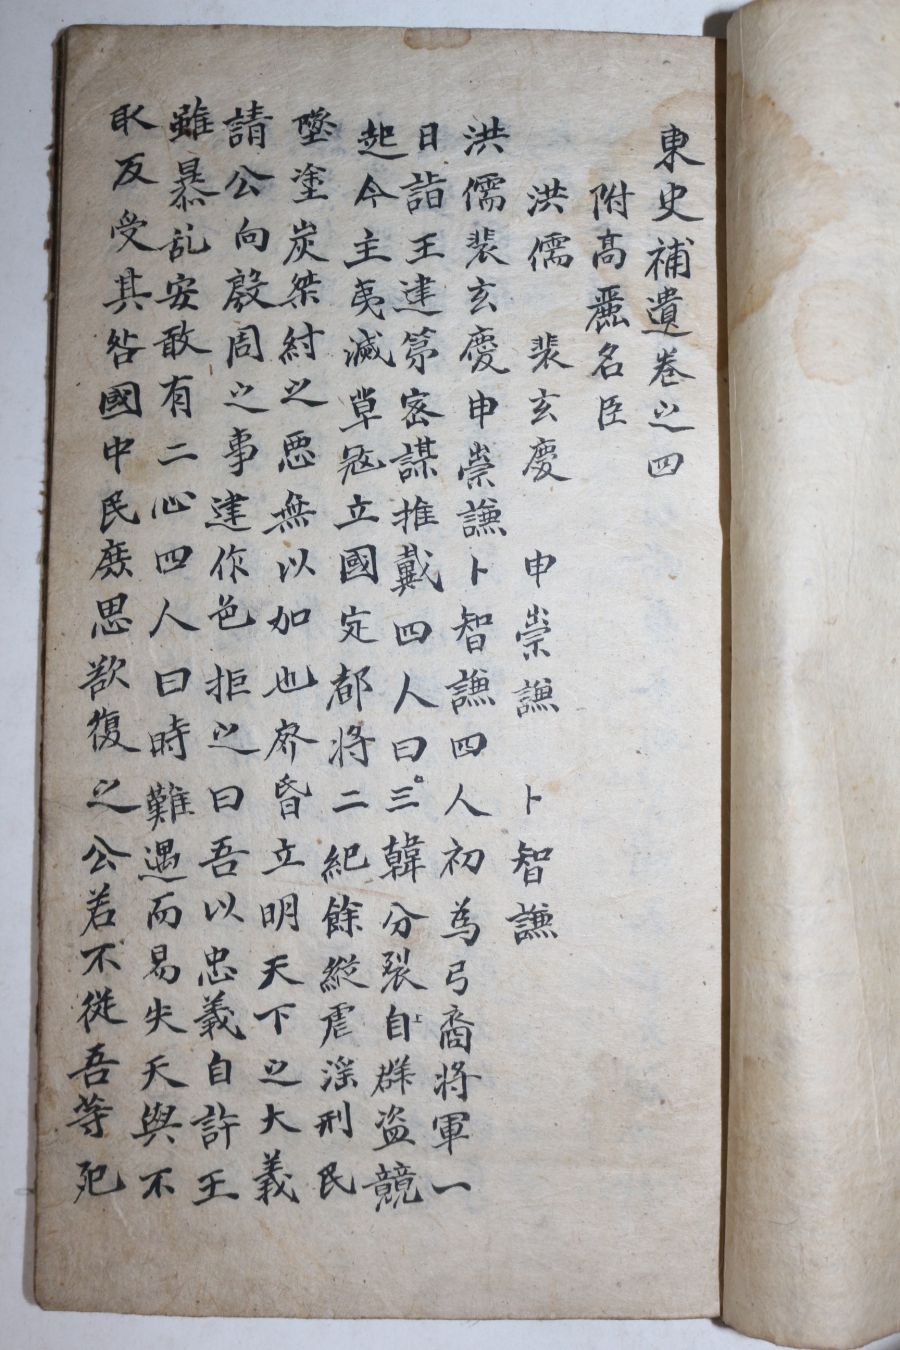 東史補遺卷之四
附高麗名臣
洪儒 裴玄慶 申崇謙 卜智謙
洪儒裴玄慶申崇謙卜智謙四人初為弓裔將軍一
日詣王建第密謀推戴四人曰三韓分裂自群盗競
起今主夷滅草寇立國定都將二紀餘縱虐淫刑民
墜塗炭桀紂之惡無以加也廢昏立明天下之大義
請公向殷周之事建作色拒之曰吾以忠義自許王
雖暴乱安敢有二心四人曰時難遇而易失天與不
取反受其咎國中民庶思欲復之公若不從吾等死